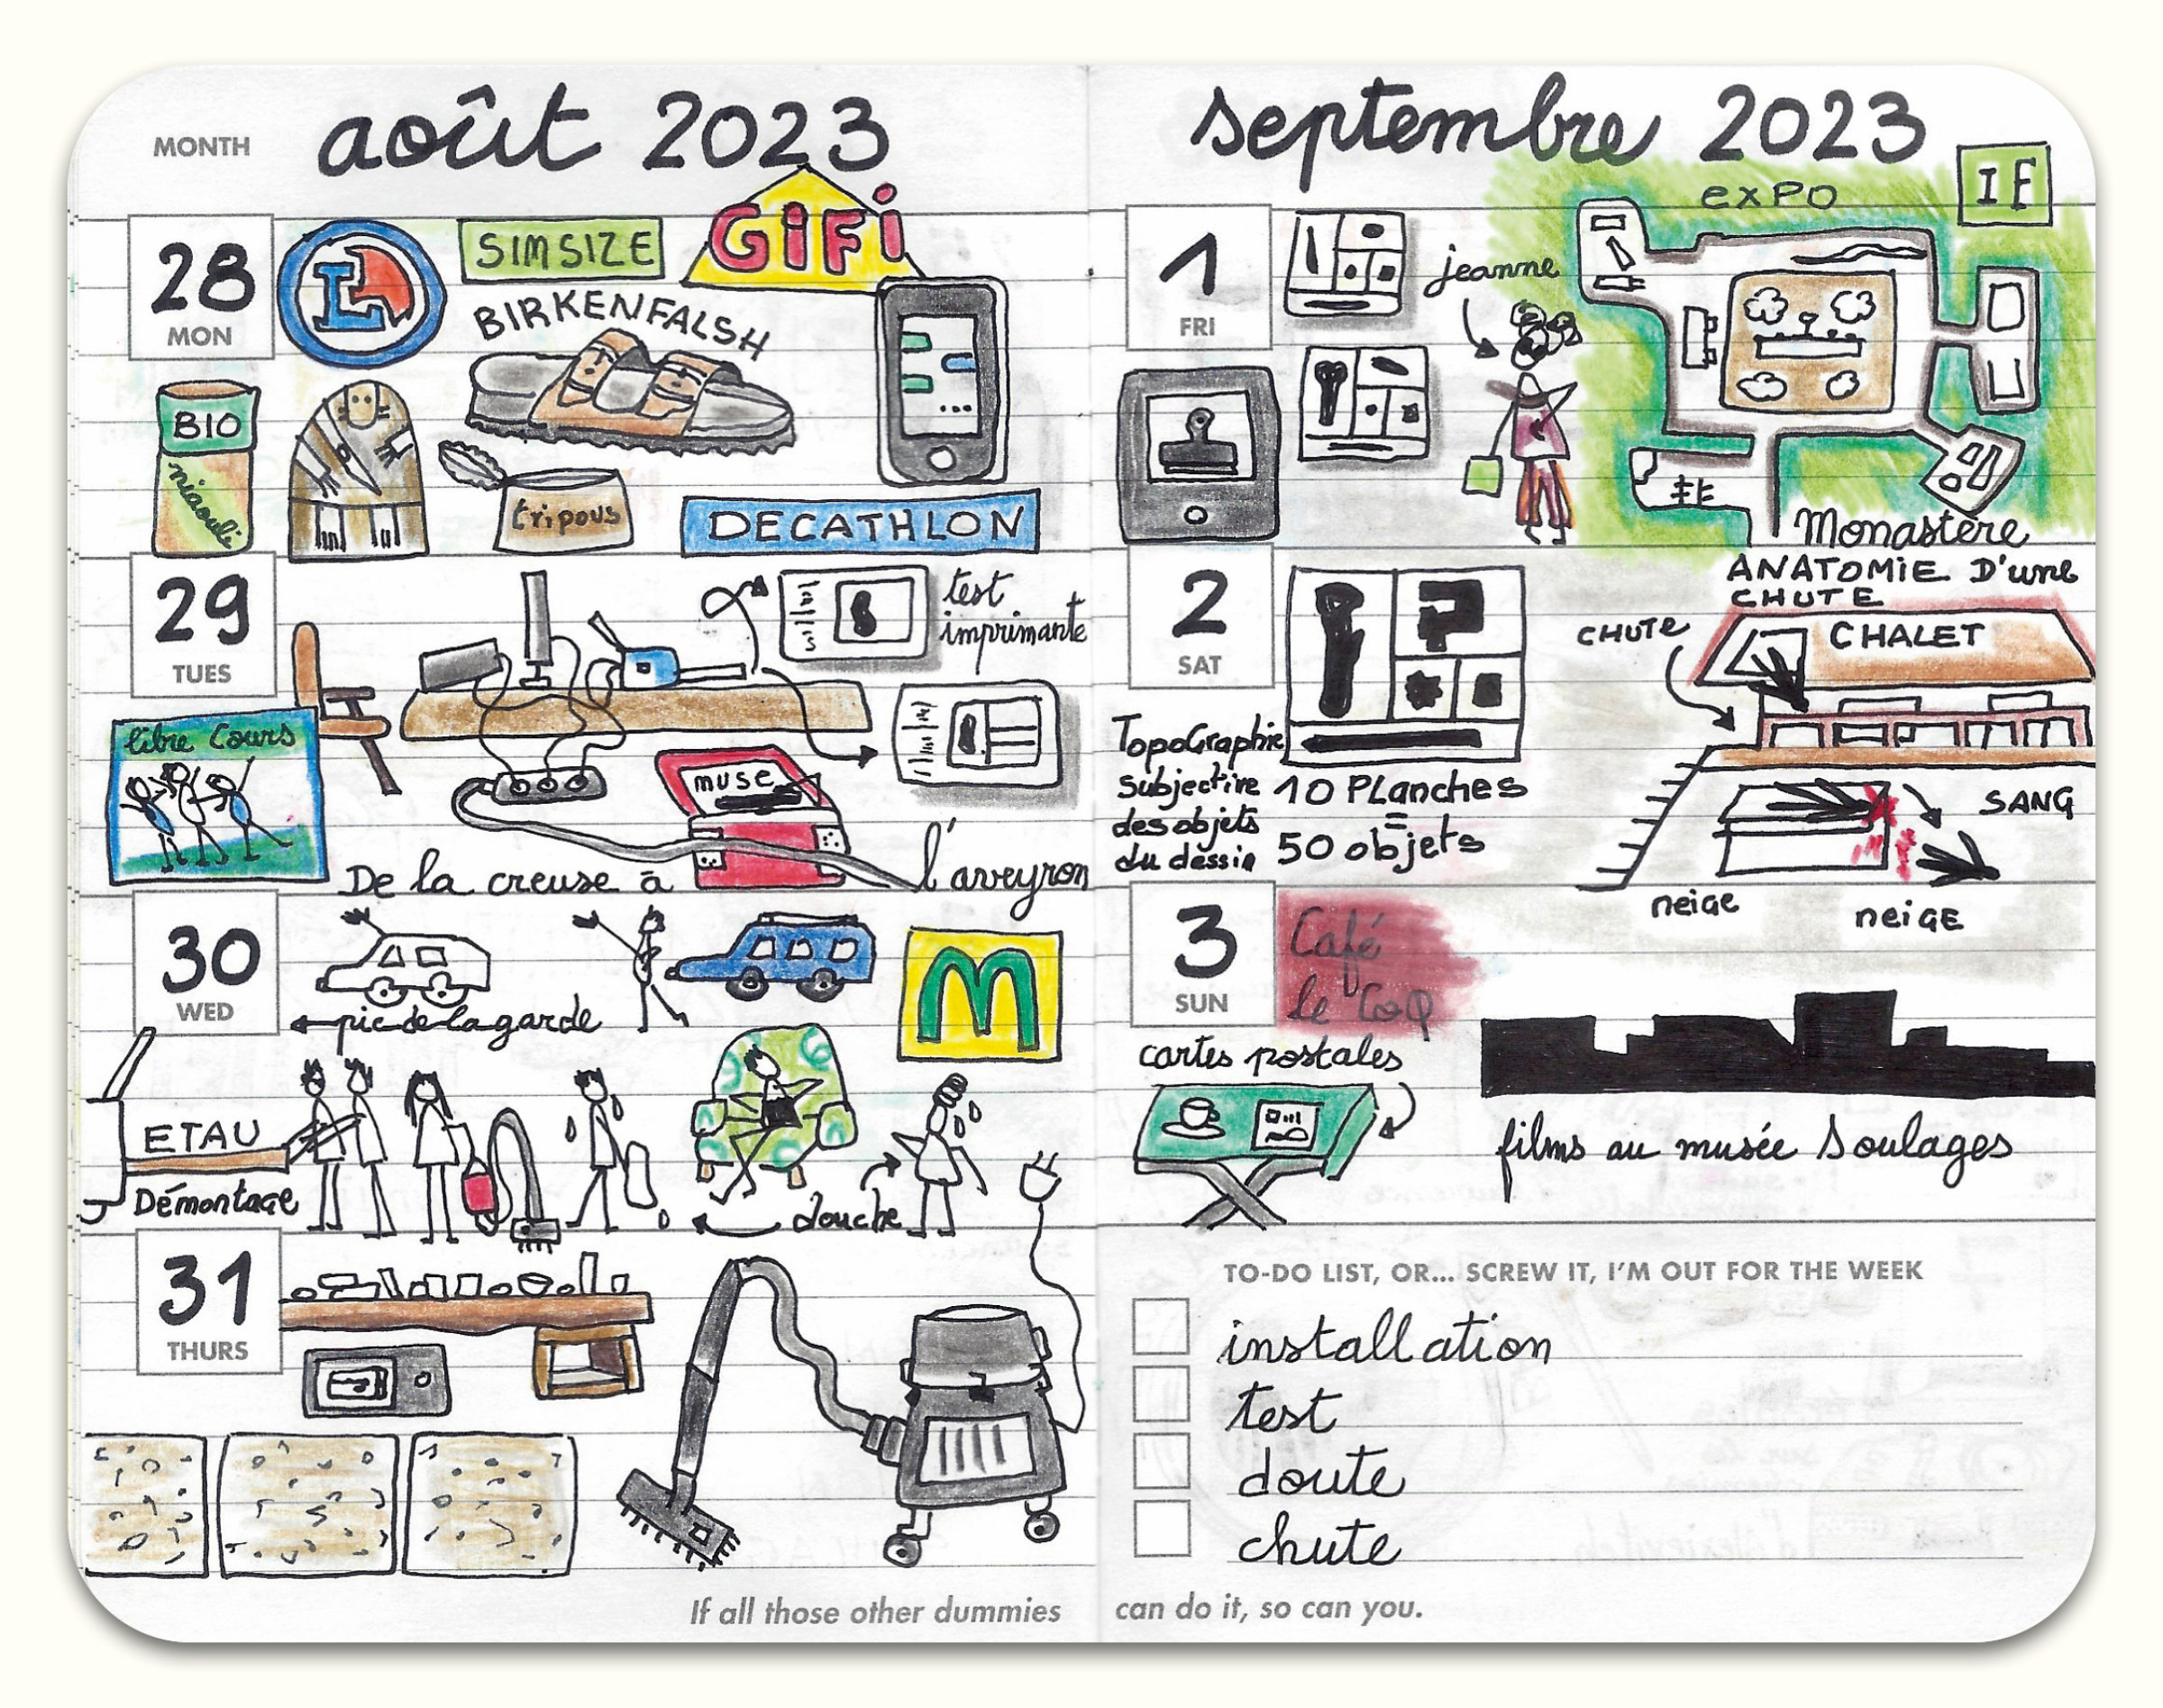 MONTH
août 2023
28
MON
L
SIMSIZE
GiFi
BIRKENFALSH
BIO
niaouli
tripous
DECATHLON
29
TUES
test
imprimante
libre Cours
muse
De la creuse à l'aveyron
30
WED
pic de la garde
M
ETAU
Démontage
douche
31
THURS
If all those other dummies
septembre 2023
1
FRI
jeanne
exPO
IF
Monastère
2
SAT
TopoGraphie
subjective
des objets
du dessin
10 PLanches
=
50 objets
ANATOMiE D'une
CHUTE
CHUTe
CHALET
SANG
neige
neiGE
3
SUN
Café
le CoQ
cartes postales
films au musée Soulages
TO-DO LIST, OR... SCREW IT, I'M OUT FOR THE WEEK
installation
test
doute
chute
can do it, so can you.